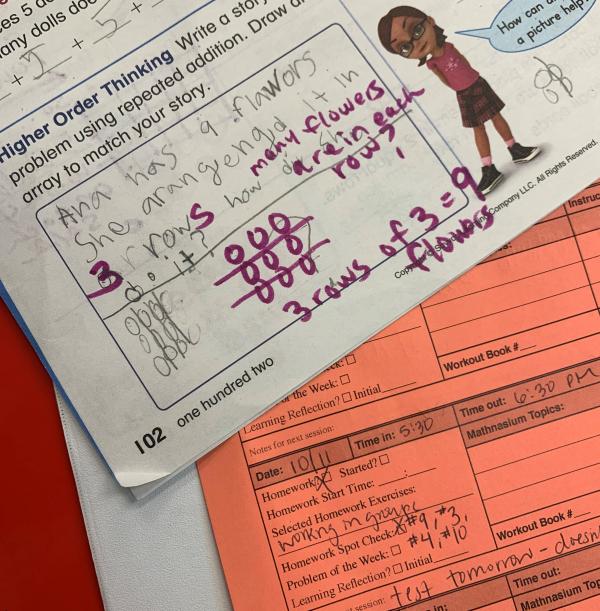 ces 5 do
any dolls doe
+ 5 + 5 +
How can
a picture help
Higher Order Thinking Write a story
problem using repeated addition. Draw an
array to match your story.
Ana has 9 flawors
She arangengaid It in
3 rows how do
many flowers
are in each
row?
it?
3 rows of 3 = 9
flowers
Company LLC. All Rights Reserved.
102 one hundred two
Instruc
Workout Book #
the Week: ☐
Learning Reflection? ☐ Initial
Notes for next session:
Date: 10/11 Time in: 5:30 Time out: 6:30 PM
Mathnasium Topics:
Homework ☒ Started? ☐
Homework Start Time: :
Selected Homework Exercises:
working in groups
Homework Spot Check: #9, #3,
#4, #10
Problem of the Week: ☐
Workout Book #
Learning Reflection? ☐ Initial
session: test tomorrow - doesn
Time in: Time out: